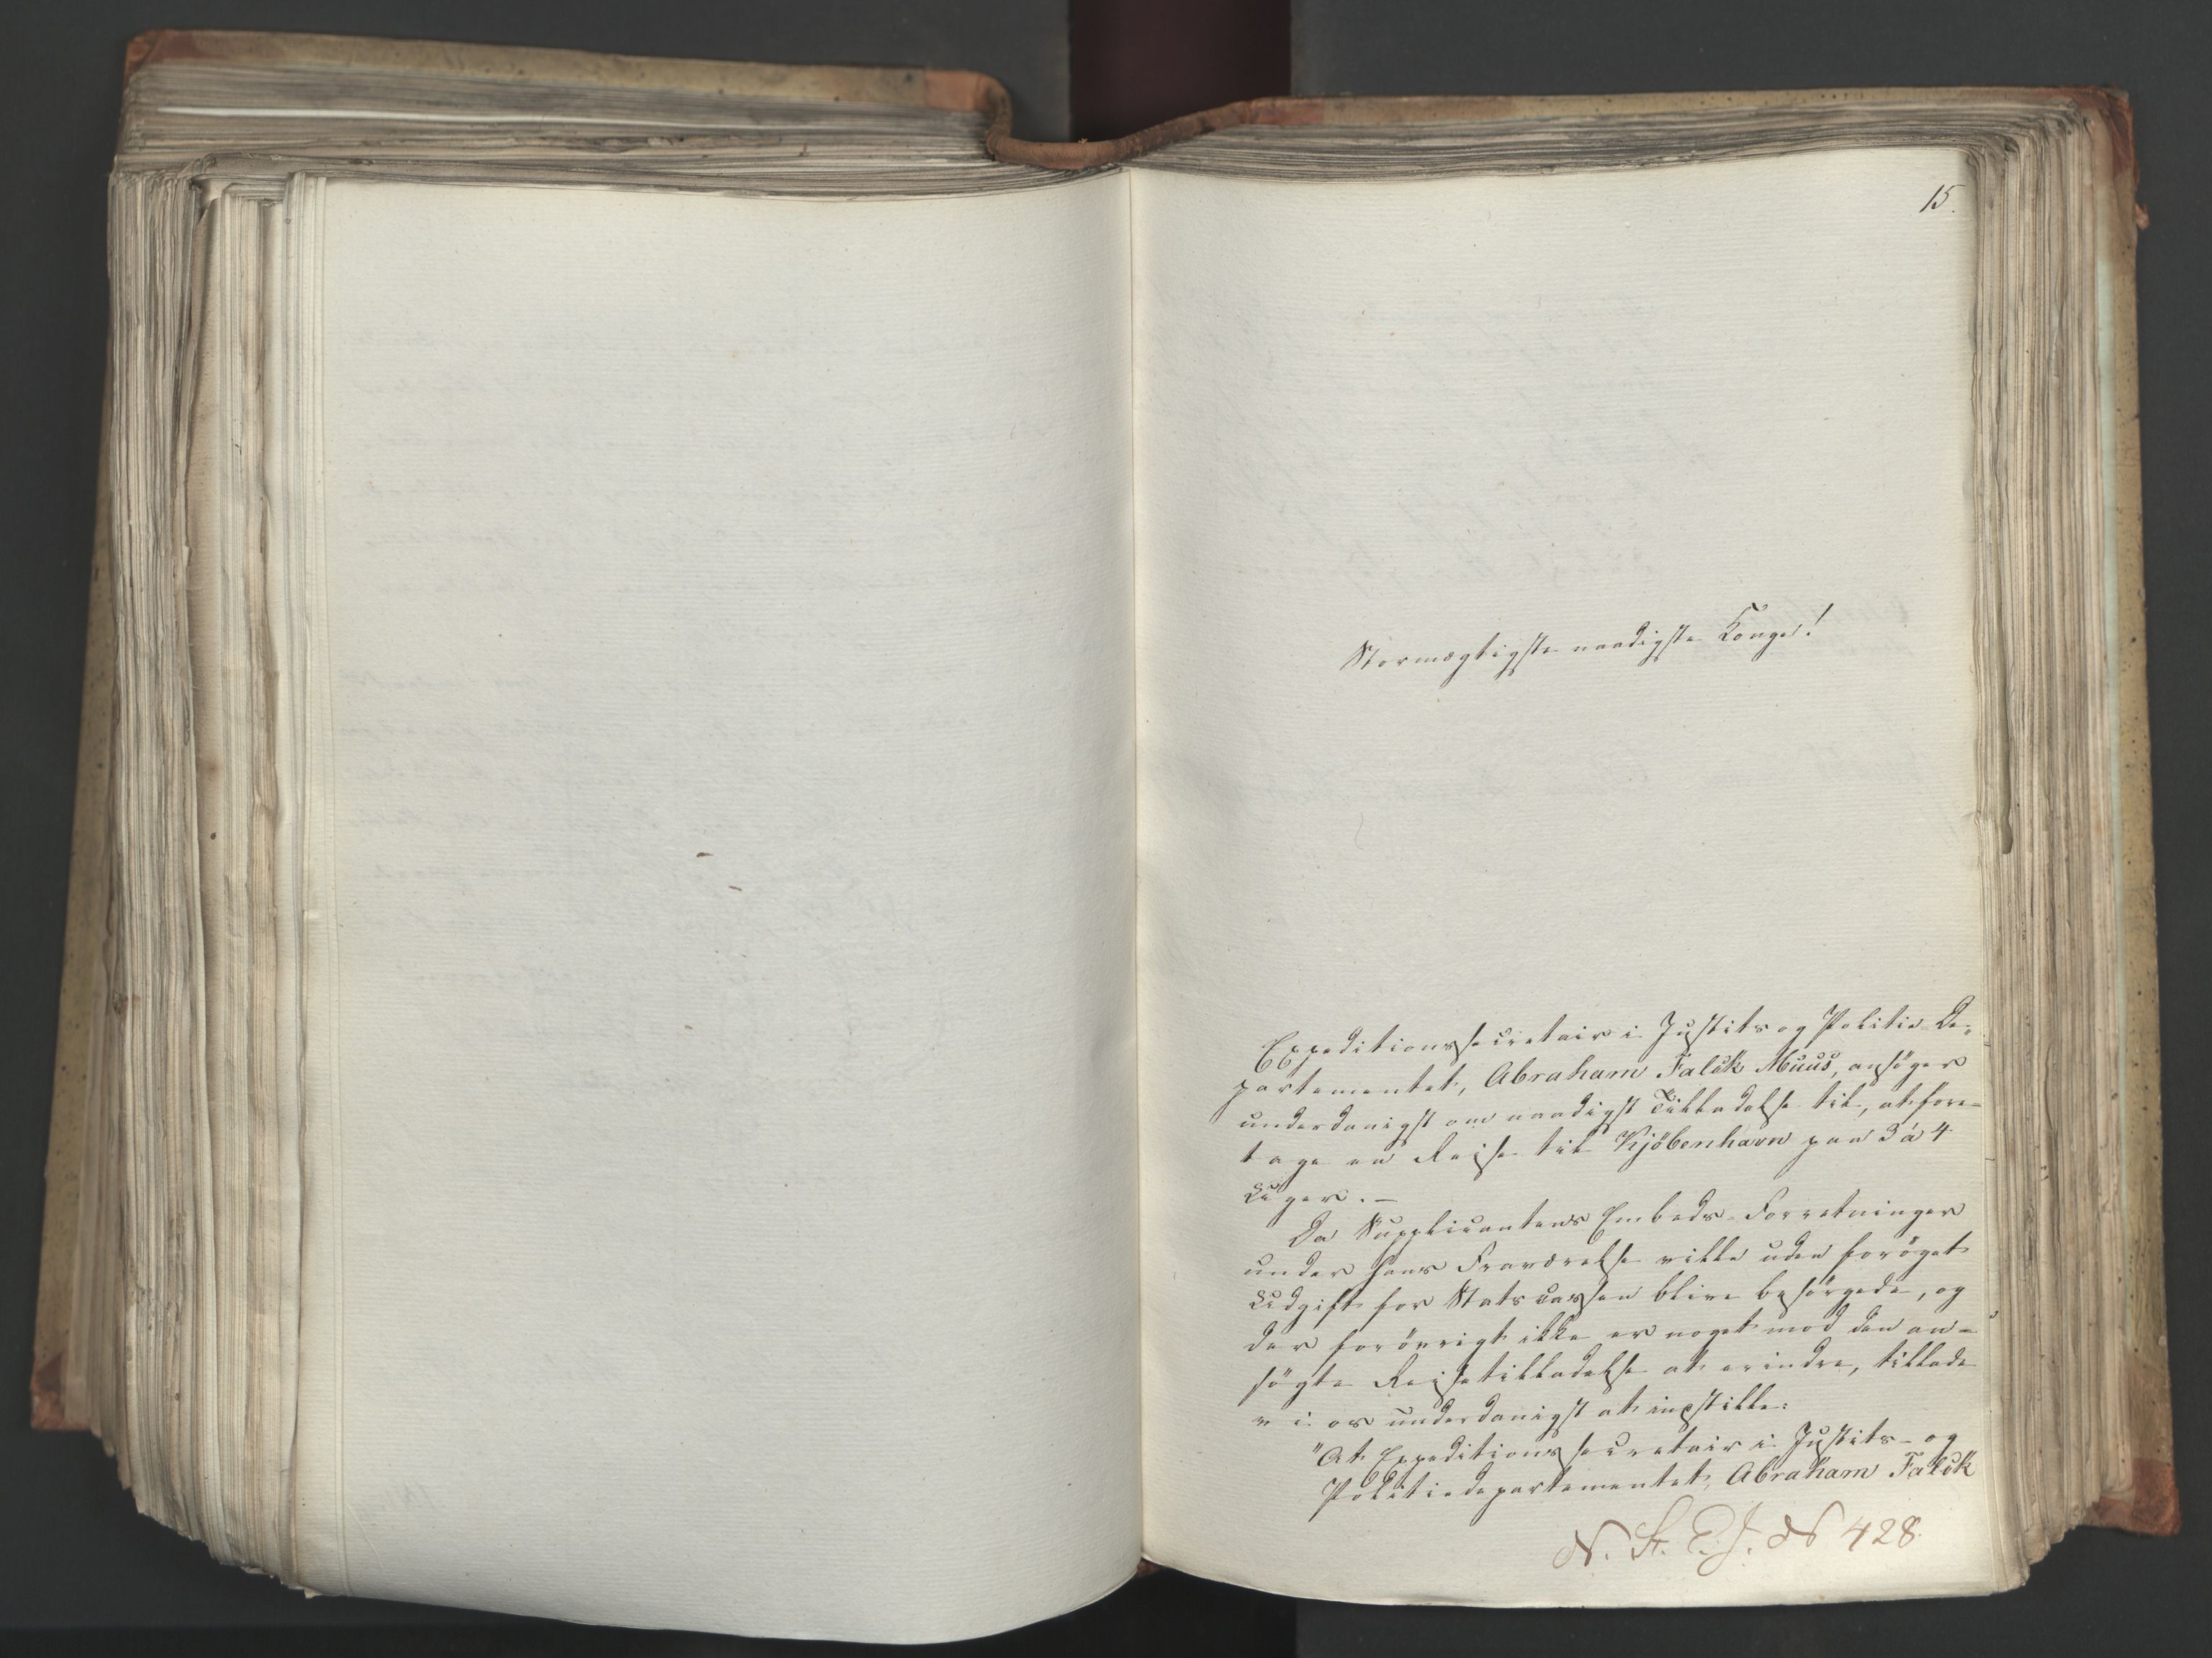 15.
Stormægtigste naadigste Konge!
Expeditionssecretair i Justits og Politie-De-
partementet, Abraham Falck Muus, ansöger
underdanigst om naadigst Tilladelse til, at fore-
tage en Reise til Kjöbenhavn paa 3 á 4
Uger. —
Da Supplicantens Embeds-Forretninger
under hans Fraværelse ville uden foröget
Udgift for Statscassen blive besörgede, og
der forövrigt ikke er noget mod den an-
sögte Reisetilladelse at erindre, tillade
vi os underdanigst at indstille:
"At Expeditionssecretair i Justits- og
Politiedepartementet, Abraham Falck
N. St. E. J. N 428.